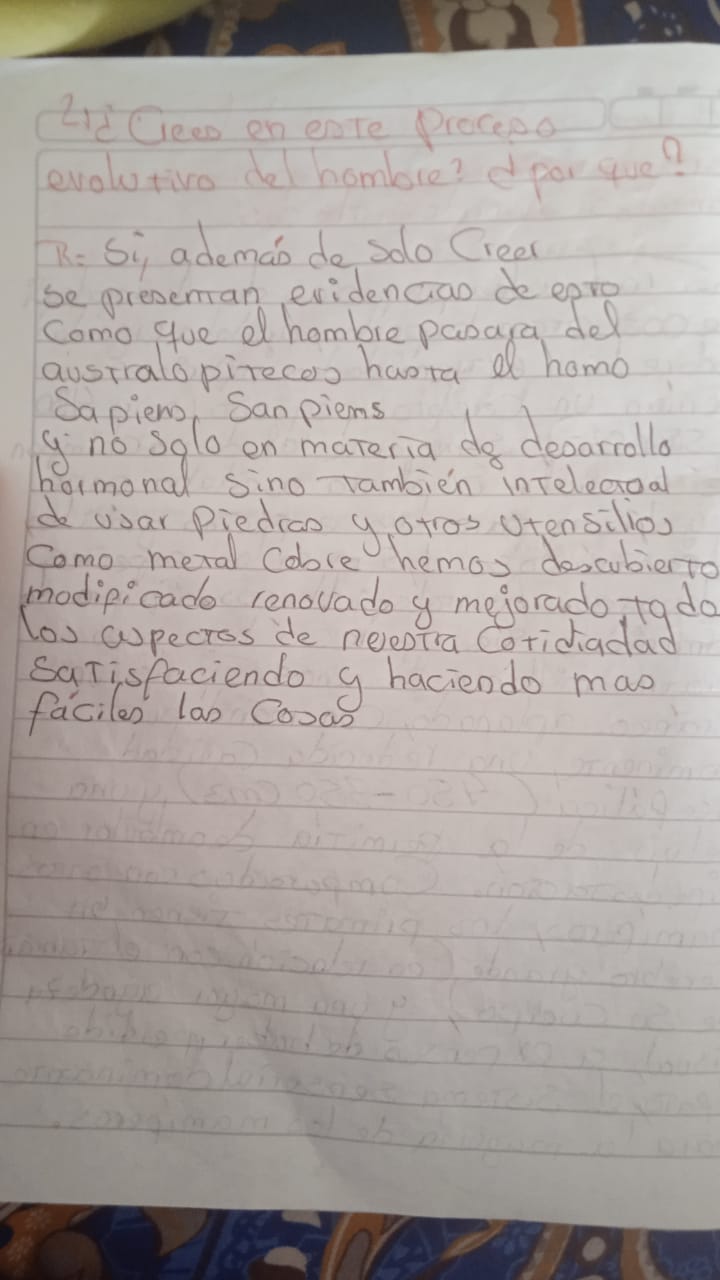 2) ¿Crees en este proceso
evolutivo del hombre? ¿por que?
R= Si, además de solo Creer
se presentan evidencias de esto
Como que el hombre pasara del
australopitecos hasta el homo
Sapiens, Sanpiems
y no solo en materia de desarrollo
hormonal sino también intelectual
de usar Piedras y otros Utensilios
Como metal Cobre hemos descubierto
modificado renovado y mejorado todo
los aspectos de nuestra Cotidiadad
Satisfaciendo y haciendo mas
fáciles las Cosas